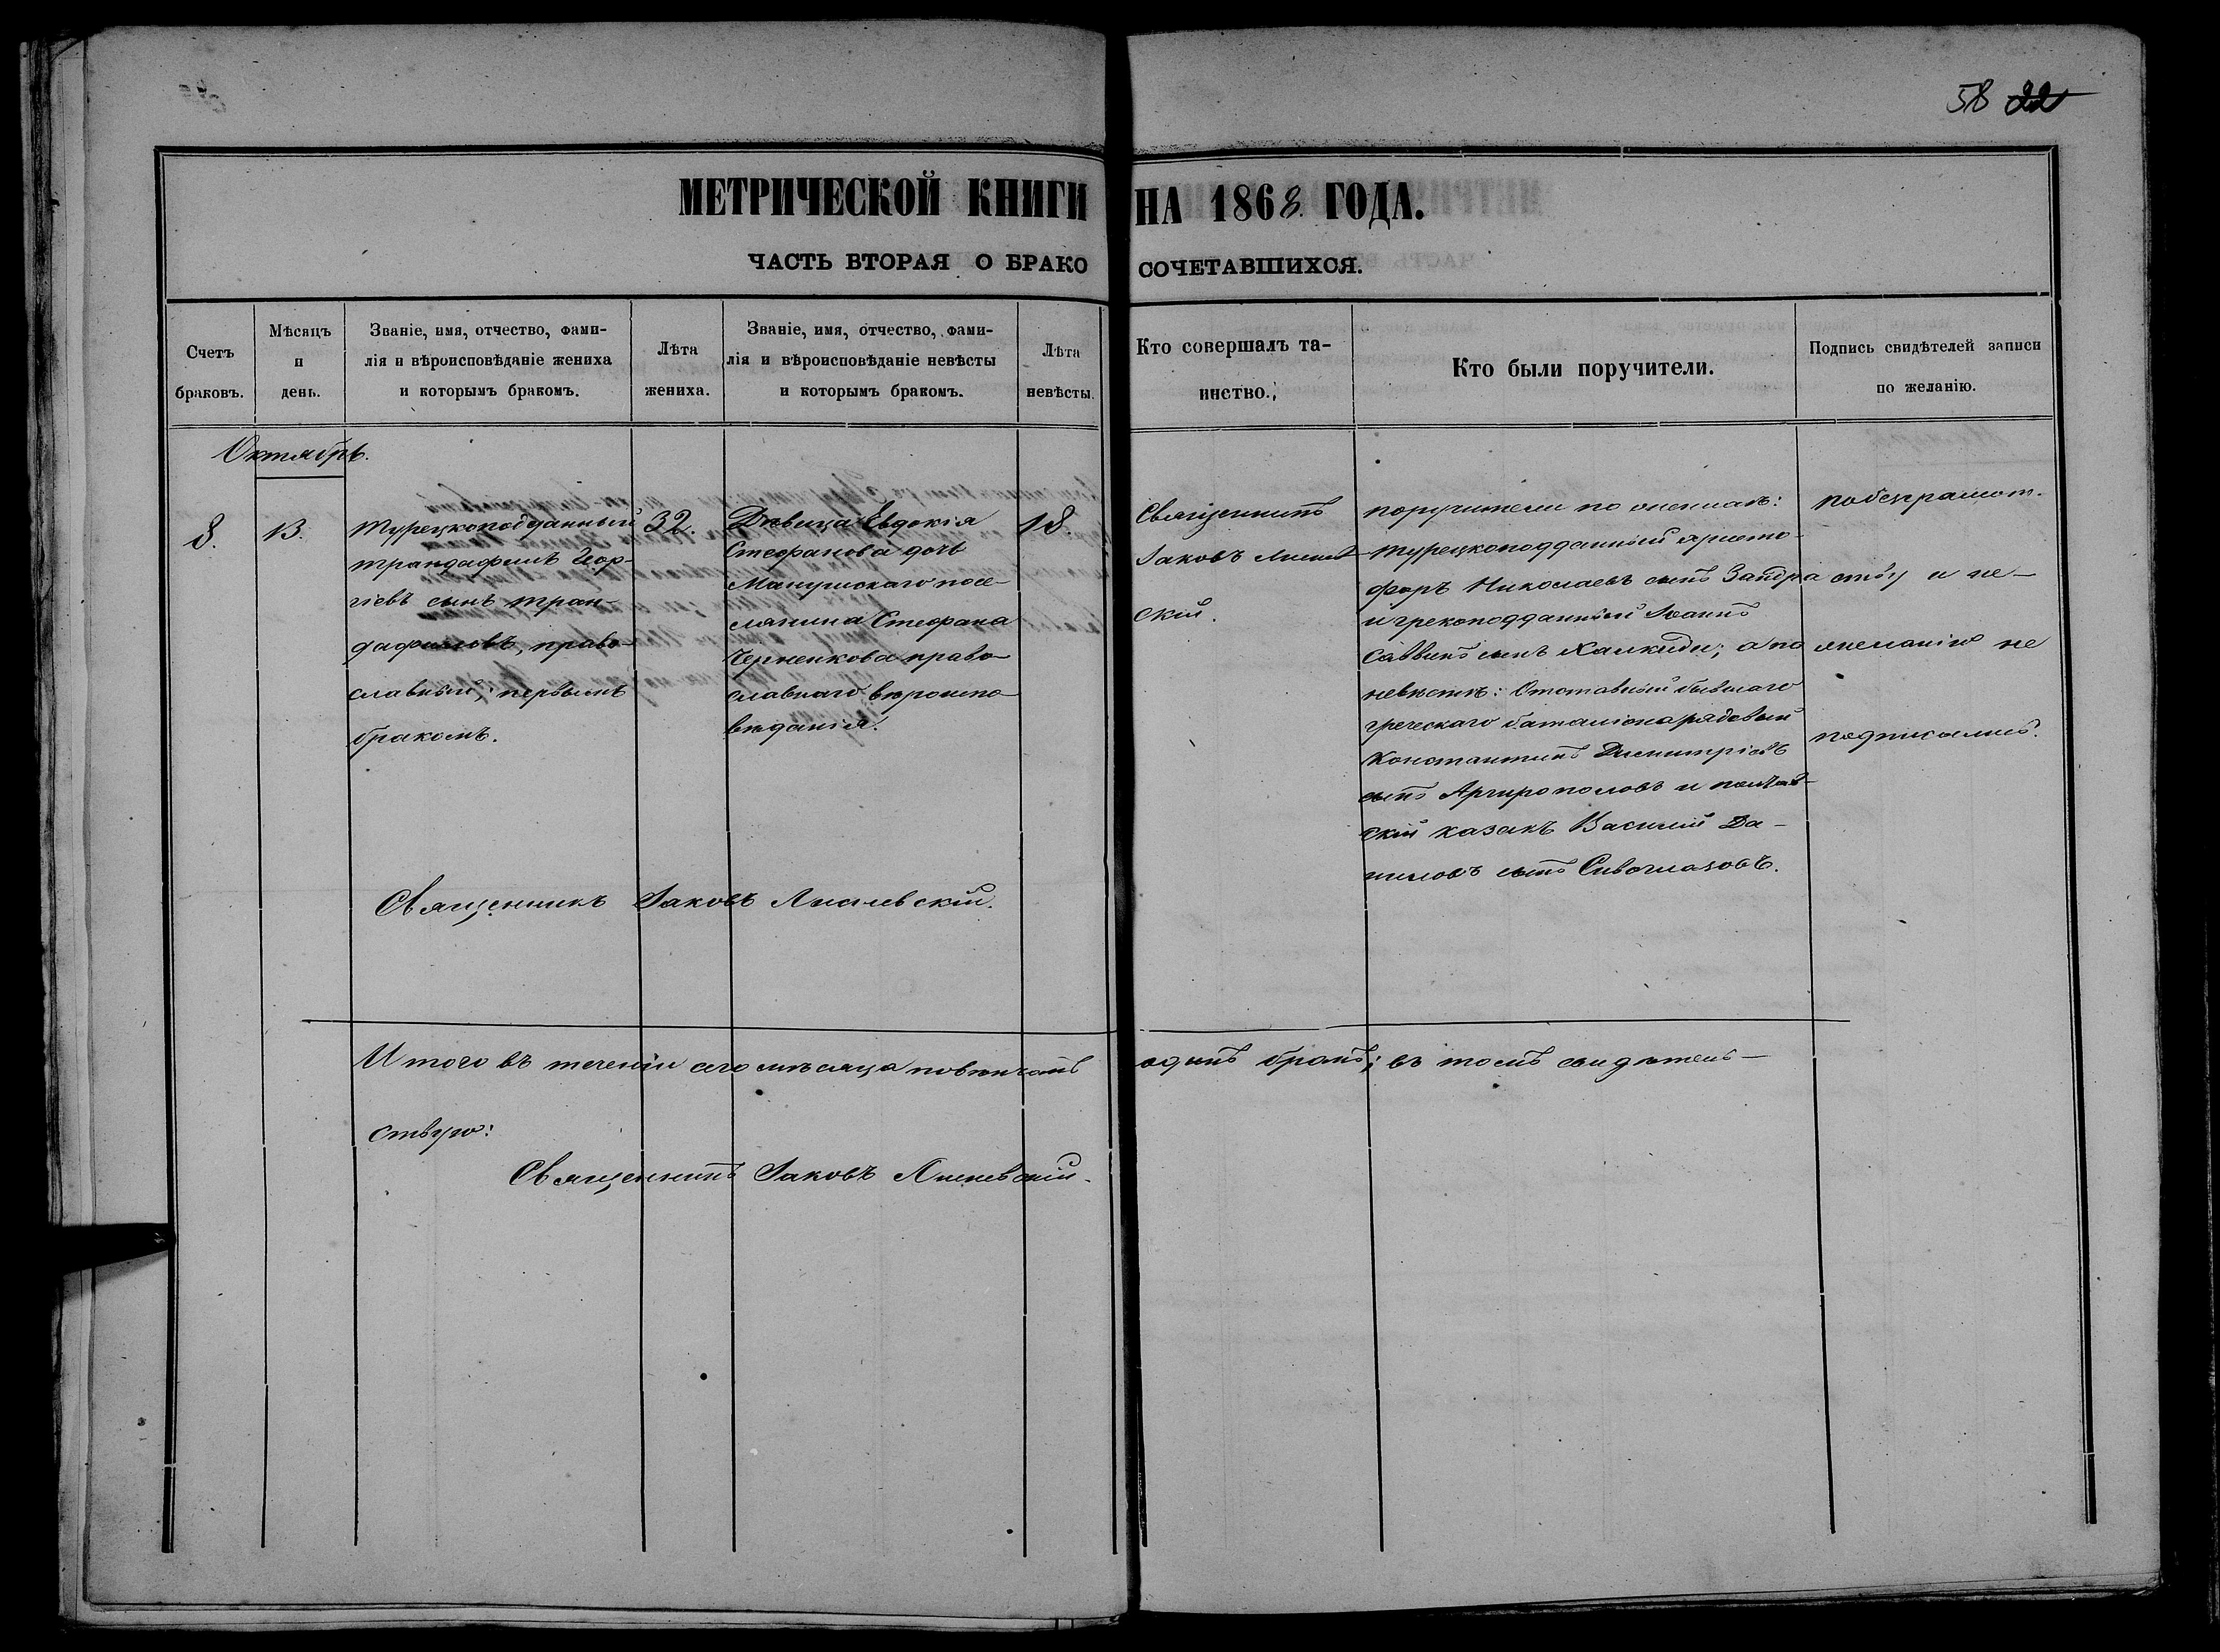 58 22
МЕТРИЧЕСКОЙ КНИГИ НА 1868 ГОДА.
ЧАСТЬ ВТОРАЯ О БРАКОСОЧЕТАВШИХСЯ.
Счетъ
браковъ.
Мѣсяцъ
и
день.
Званіе, имя, отчество, фами-
лія и вѣроисповѣданіе жениха
и которымъ бракомъ.
Лѣта
жениха.
Званіе, имя, отчество, фами-
лія и вѣроисповѣданіе невѣсты
и которымъ бракомъ.
Лѣта
невѣсты.
Кто совершалъ та-
инство.
Кто были поручители.
Подпись свидѣтелей записи
по желанію.
Октябрь.
8.
13.
Турецкоподданный
трандафилъ Геор-
гіевъ сынъ тран-
дафиловъ, право-
славный, первымъ
бракомъ.
32.
Дѣвица Евдокія
Стефанова дочь
посе-
лянина Стефана
Черненкова право-
славнаго вѣроиспо-
вѣданія.
18.
Священникъ
Іаковъ Лиснев-
скій.
поручители по женихѣ:
турецкоподданный христо-
форъ Николаевъ сынъ
и грекоподданный Іоаннъ
Саввинъ сынъ Халкиди; а по
невѣстѣ: Отставный бывшаго
греческаго баталіона рядовый
Константинъ Димитріевъ
сынъ Аргирополовъ и полтав-
скій казакъ Василій Да-
ниловъ сынъ Сивоглазовъ.
по безграмот-
ству и не-
желанію не
подписались.
Священникъ Іаковъ Лисневскій.
Итого въ теченіи сего мѣсяца повѣнчанъ одинъ бракъ; въ томъ свидѣтель-
ствую:
Священникъ Іаковъ Лисневскій.